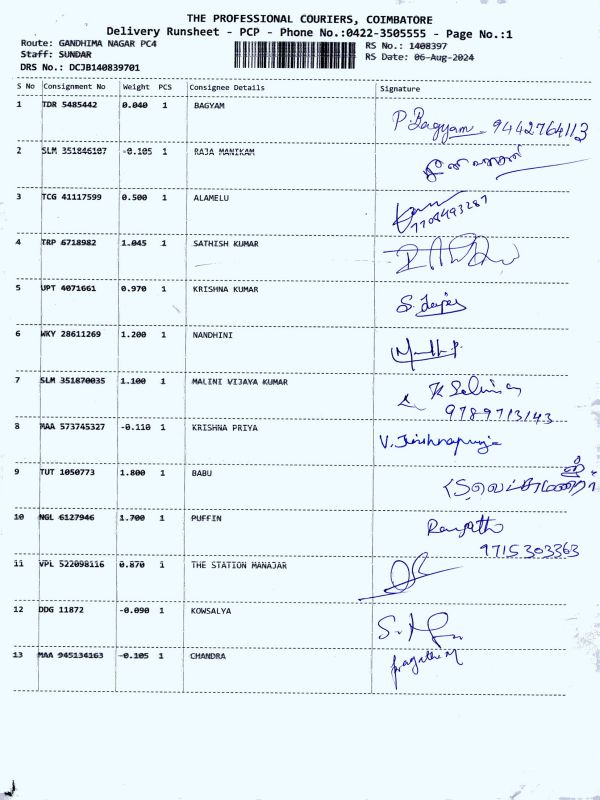 THE PROFESSIONAL COURIERS, COIMBATORE
Delivery Runsheet - PCP - Phone No.:0422-3505555 - Page No.:1
Route: GANDHIMA NAGAR PC4 RS No.: 1408397
Staff: SUNDAR RS Date: 06-Aug-2024
DRS No.: DCJB140839701
S No Consignment No Weight PCS Consignee Details Signature
1 TDR 5485442 0.040 1 BAGYAM
P. Bagyam 9442764113
2 SLM 351846107 -0.105 1 RAJA MANIKAM
3 TCG 41117599 0.500 1 ALAMELU
7708493287
4 TRP 6718982 1.045 1 SATHISH KUMAR
5 UPT 4071661 0.970 1 KRISHNA KUMAR
6 WKY 28611269 1.200 1 NANDHINI
7 SLM 351870035 1.100 1 MALINI VIJAYA KUMAR
9789713143
8 MAA 573745327 -0.110 1 KRISHNA PRIYA
9 TUT 1050773 1.800 1 BABU
10 NGL 6127946 1.700 1 PUFFIN
9715303363
11 VPL 522098116 0.870 1 THE STATION MANAJAR
12 DDG 11872 -0.090 1 KOWSALYA
13 MAA 945134163 -0.105 1 CHANDRA